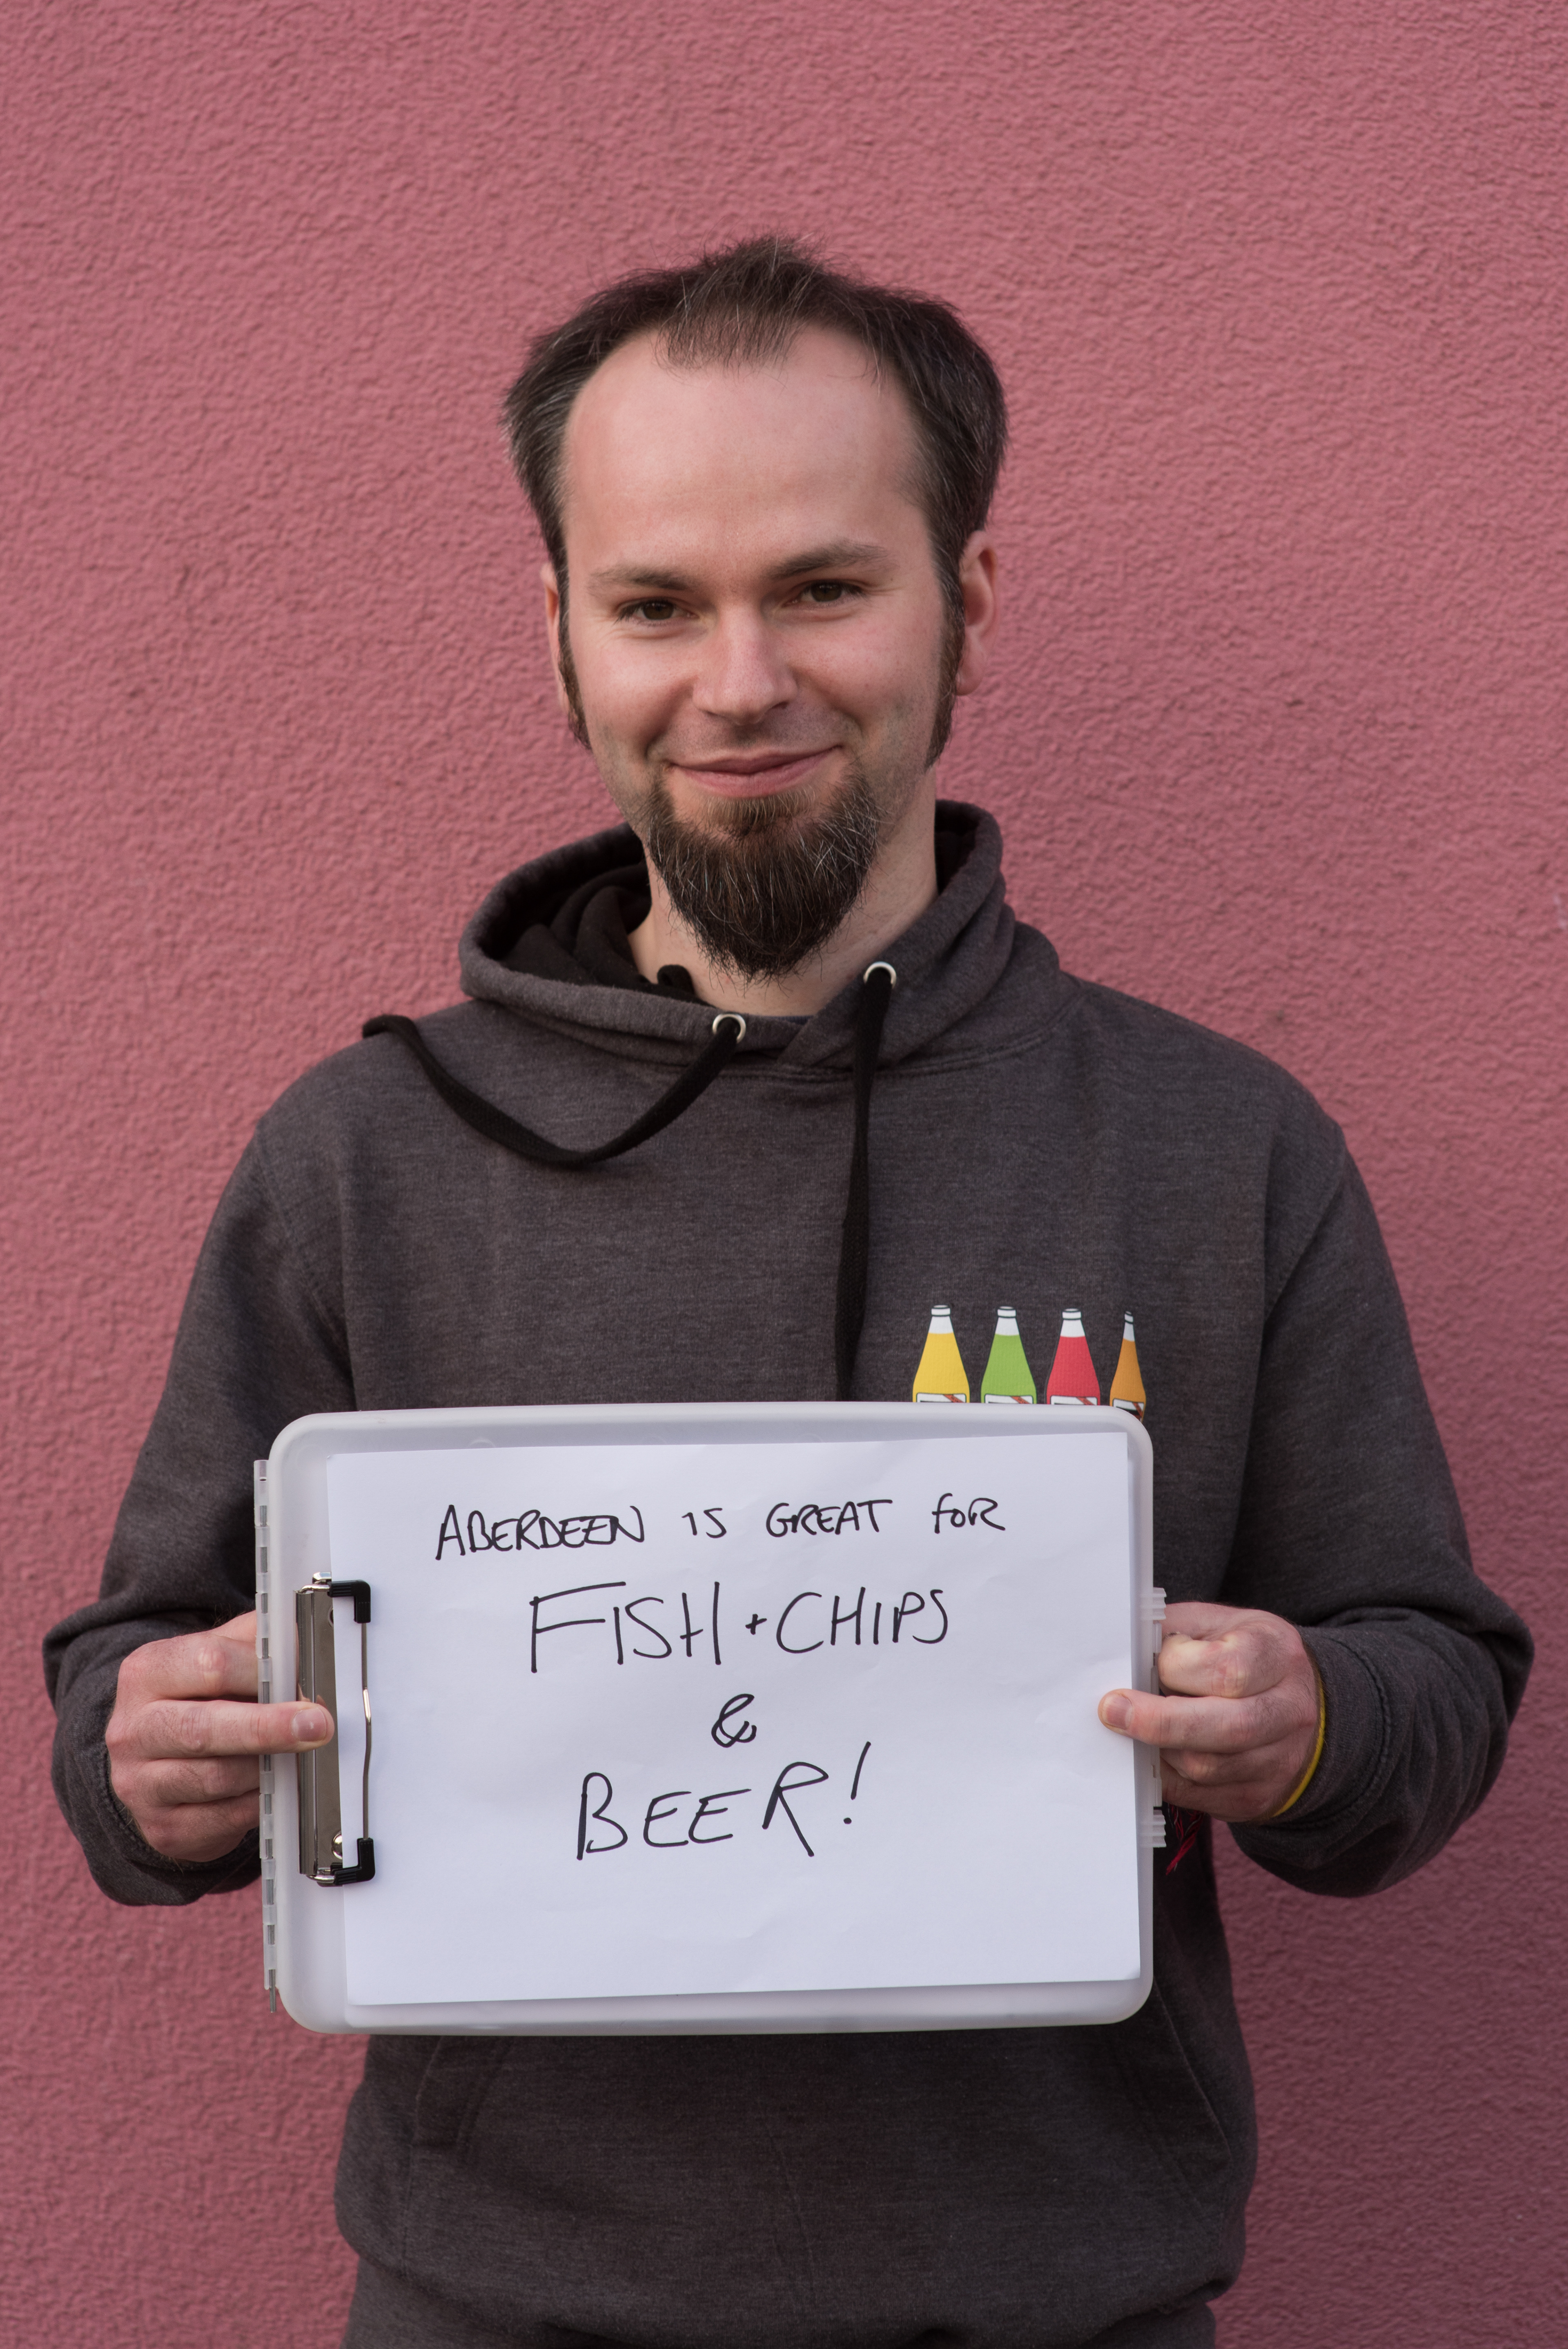 ABERDEEN IS GREAT FOR
FISH + CHIPS
&
BEER!